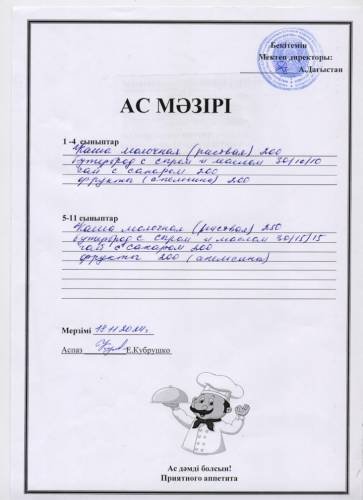 Бекітемін
Мектеп директоры:
А.Дағыстан
АС МӘЗІРІ
1 -4 сыныптар
Каша молочная (рисовая) 200
бутерброд с сыром и маслом 30/10/10
чай с сахаром 200
фрукты (апельсин) 200
5-11 сыныптар
Каша молочная (рисовая) 250
бутерброд с сыром и маслом 30/15/15
чай с сахаром 200
фрукты 200 (апельсин)
Мерзімі 18.11.2024г.
Аспаз Е.Кубрушко
Ас дәмді болсын!
Приятного аппетита